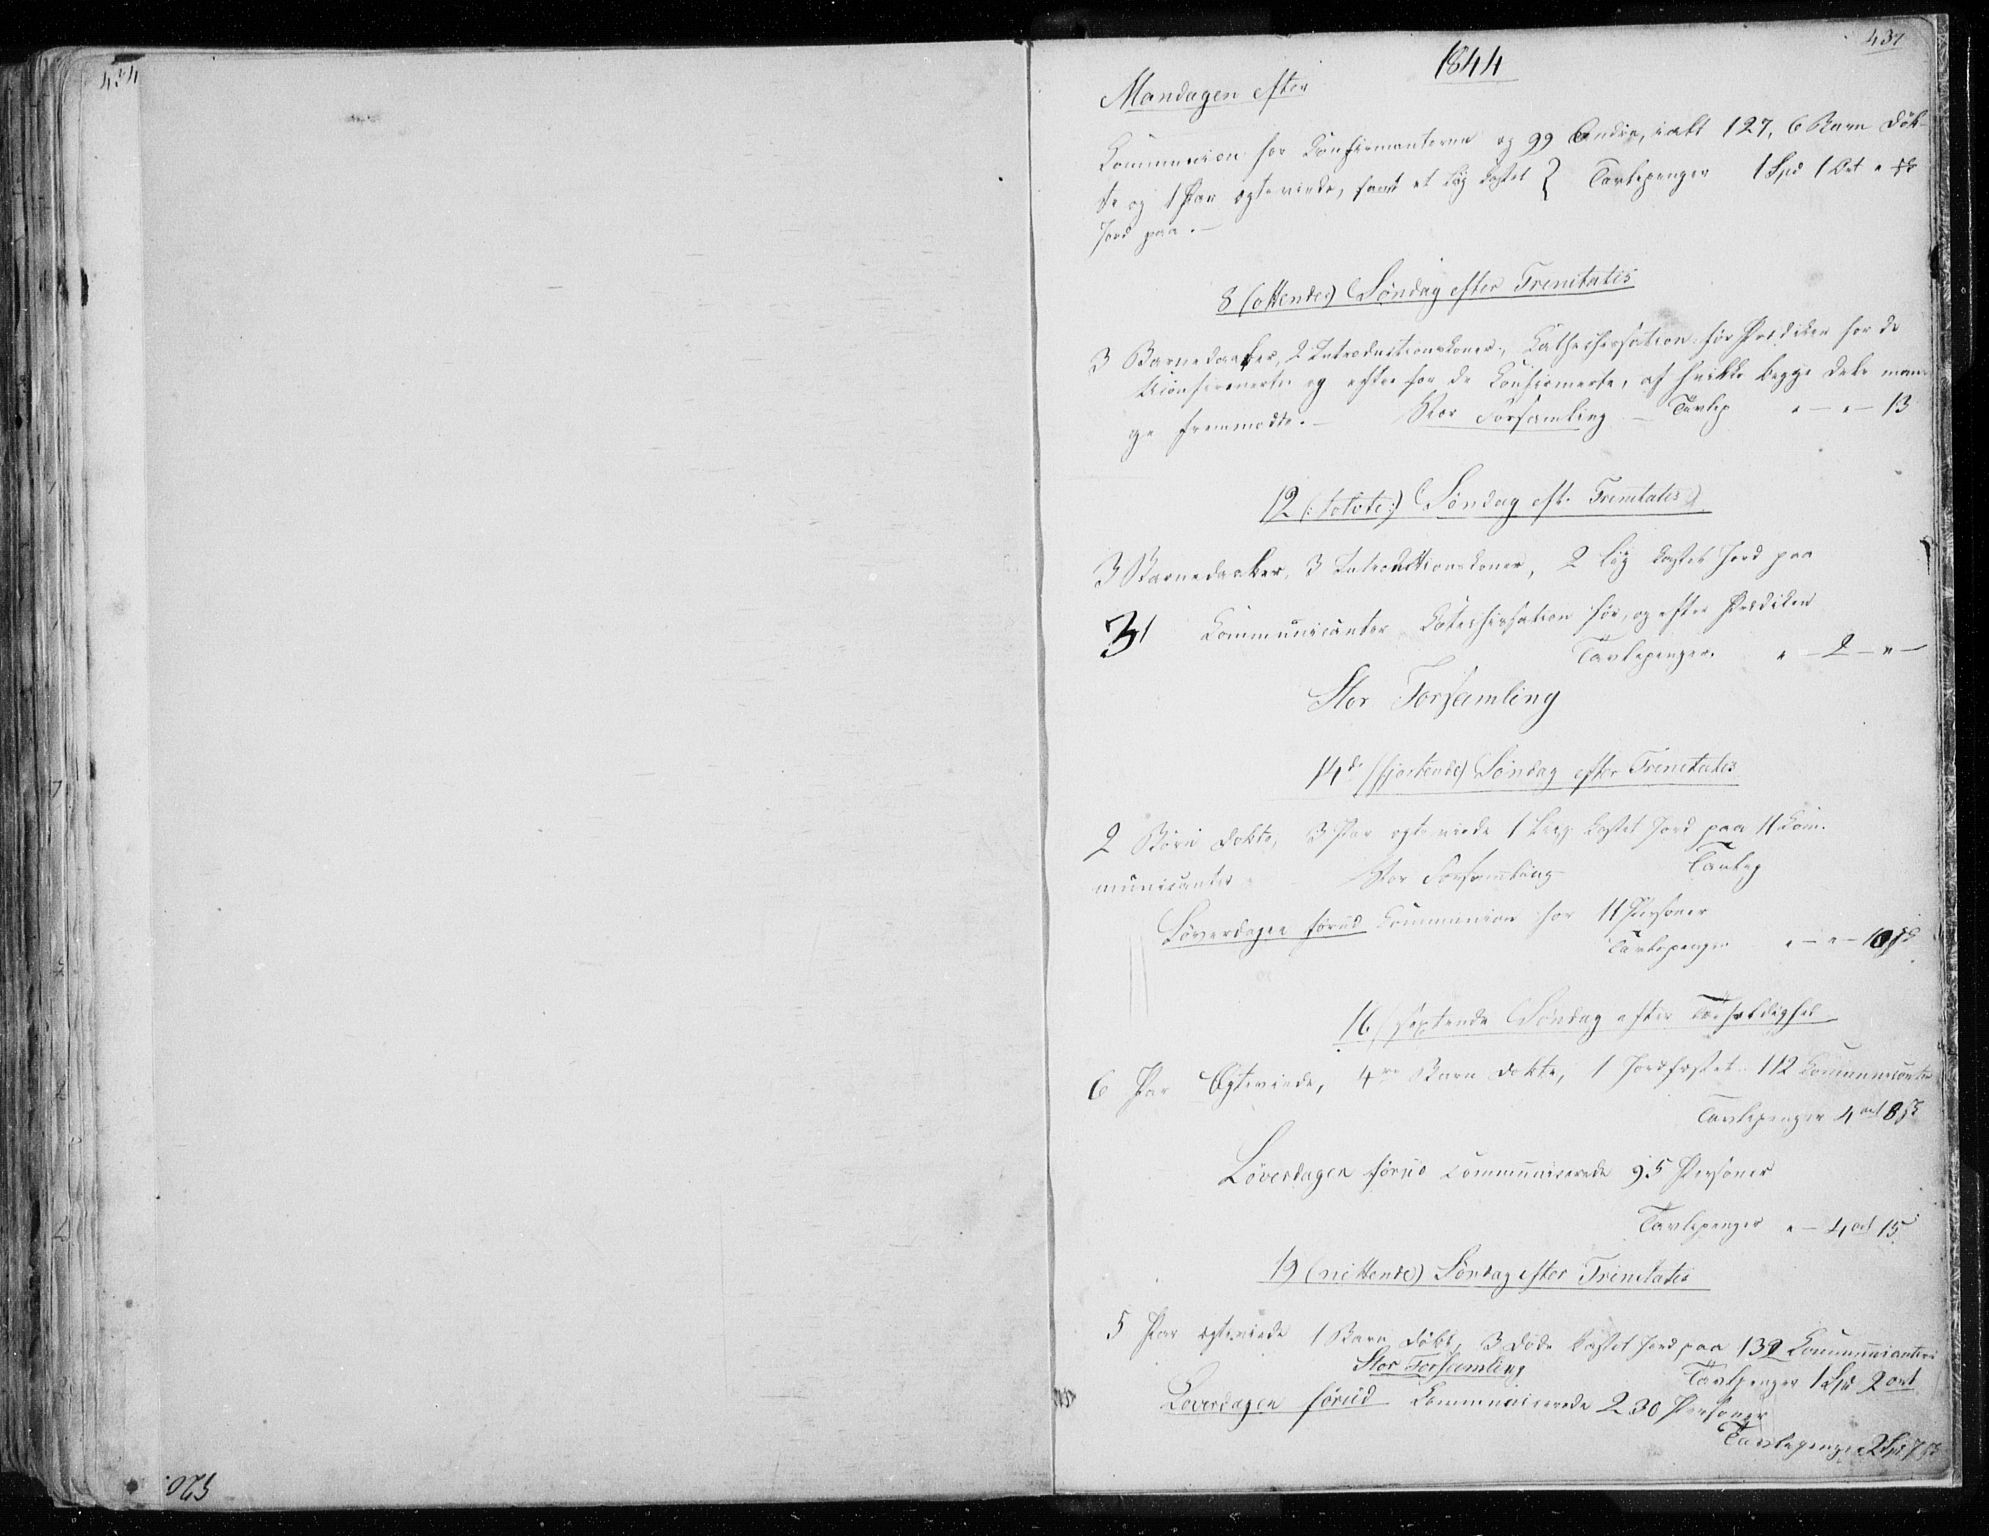 434
520
437
1844
Mandagen efter
Communion for Confirmanterne og 99 Andre, ialt 127, 6 Barn døb-
te og 1 Par egteviede, samt et Lig kastet } Tavlepenger 1 Spd 1 Ort
Jord paa. —
8 (ottende) Søndag efter Trinitatis
3 Barnedaaber, 2 Introductionskoner, Cathechisation før Prædiken for de
Uconfirmerte og efter for de Confirmerte, af hvilke begge dele man-
ge fremmødte. — Stor Forsamling — Tavlep " — " — 13
12 (: tolvte :) Søndag eft. Trinitatis
3 Barnedaaber, 3 Introductionskoner, 2 Lig kastet Jord paa
31 Communicanter Catechisation før, og efter Prædiken
Tavlepenger. " — 2 — " —
Stor Forsamling
14de (fjortende) Søndag efter Trinitatis
2 Børn døbte, 3 Par egteviede 1 Lig kastet Jord paa 11 Com-
municanter Stor Forsamling Tavlep
Løverdagen forud Communion for 11 Personer
Tavlepenger " — " — 10 s
16 (sextende Søndag efter Trefoldighed
6 Par Egteviede, 4re Barn døbte, 1 Jordfæstet 112 Communicanter
Tavlepenger 4 ort 8 s
Løverdagen forud communicerede 95 Personer
Tavlepenger " — 4 ort 15
19 (nittende) Søndag efter Trinitatis
5 Par egteviede 1 Barn døbt, 3 døde kastet Jord paa 132 Communicanter
Stor Forsamling Tavlpenger 1 Spd 2 ort
Løverdagen forud Communicerede 230 Personer
Tavlepenge 2 Spd 7 s